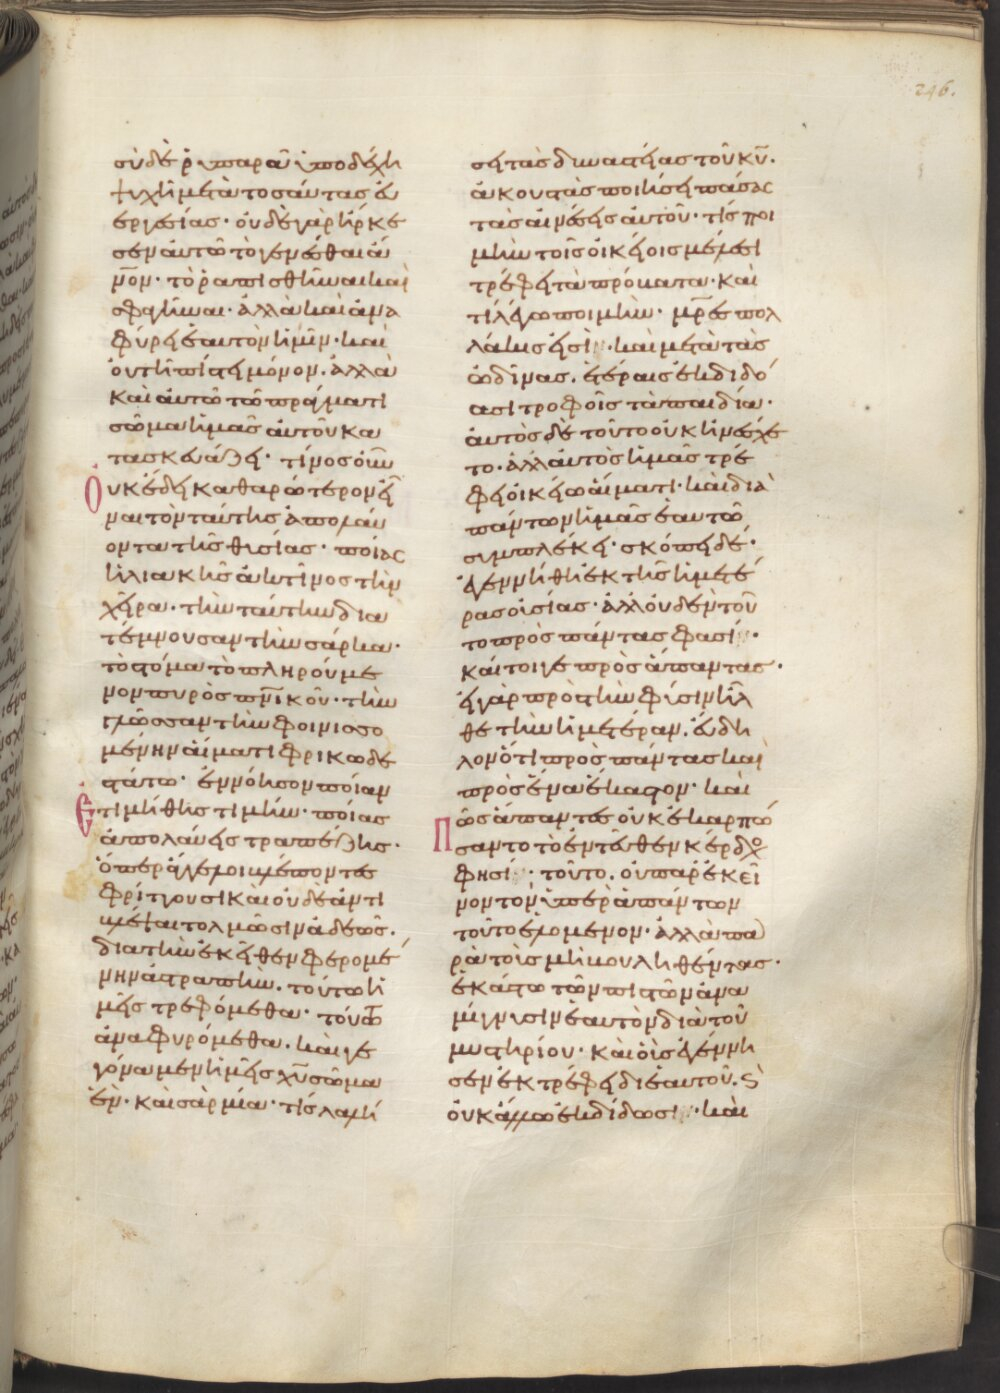 σὺ δὲ ῥυπαρᾶ ὑποδέχη
ψυχῆ μετὰ τοσαύτας εὐ
εργεσίας· οὐδὲ γὰρ ἤρκε
σεν αὐτῶ τὸ γενέσθαι ἄν
νον· τὸ ῥαπισθῆναι καὶ
σφαγῆναι· ἀλλὰ καὶ ἀνα
φύρει ἑαυτὸν ἡμῖν· καὶ
οὐ τῆ πίστει μόνον. ἀλλὰ
καὶ αὐτῶ τῶ πράγματι
σῶμα ἡμᾶς αὐτοῦ κα
τασκευάζει· τίνος οὖν
Οὐκ ἔδει καθαρώτερον εἶ
ναι τὸν ταύτης ἀπολαύ
οντα τῆς θυσίας· ποίας
ἡλιακῆς ἀκτῖνος τὴν
χεῖρα· τὴν ταύτην δια
τέμνουσαν τὴν σάρκα·
τὸ στόμα τὸ πληρούμε
νον πυρὸς πνικοῦ· τὴν
γλῶσσαν τὴν φοινισσο
μένην αἵματι φρικωδε
στάτω· ἐννόησον ποίαν
Ἐτιμήθης τιμήν· ποίας
ἀπολαύεις τραπέζης·
ὅπερ ἄγγελοι βλέποντες
φρίττουσι καὶ οὐδὲ ἀντι
βλέψαι τολμῶσιν ἀδεῶς·
διὰ τὴν ἐκεῖθεν φερομέ
νην ἀστραπήν. τούτω ἡ
μεῖς τρεφόμεθα· τούτω
ἀναφυρόμεθα. καὶ γε
γόναμεν ἡμεῖς χυ σῶμα
ἕν· καὶ σὰρξ μία· τίς λαλή
σει τὰς δυναστείας τοῦ κυ.
ἀκουστὰς ποιήσει πάσας
τὰς αἰνέσεις αὐτοῦ· τίς ποι
μὴν τοῖς οἰκείοις μέλεσι
τρέφει τὰ πρόβατα· καὶ
τί λέγω ποιμήν· μρες πολ
λάκις εἰσὶ· καὶ μετὰ τὰς
ὠδῖνας. ἑτέραις ἐκδιδό
ασι τροφοῖς τὰ παιδία·
αὐτὸς δὲ τοῦτο οὐκ ἠνέσχε
το· ἀλλ' αὐτὸς ἡμᾶς τρέ
φει οἰκείω αἵματι· καὶ διὰ
πάντων ἡμᾶς ἑαυτῶ
συμπλέκει· σκόπει δέ·
ἐγεννήθη ἐκ τῆς ἡμετέ
ρας οὐσίας· ἀλλ' οὐδὲν τοῦ
το πρὸς πάντας φασὶ·
καίτοιγε πρὸς ἅπαντας·
εἰ γὰρ πρὸς τὴν φύσιν ἦλ
θε τὴν ἡμετέραν. εὔδη
λον ὅτι πρὸς πάντας καὶ
πρὸς ἕνα ἕκαστον· καὶ
Πῶς ἅπαντες οὐκ ἐκαρπώ
σαντο τὸ ἐντεῦθεν κέρδος
φησὶ· τοῦτο. οὐ παρ' ἐκεῖ
νον τὸν ὑπὲρ ἁπάντων
τοῦτο ἑλόμενον· ἀλλὰ πα
ρὰ τοὺς μὴ βουληθέντας·
ἑκάστω τῶν πιστῶν ἀνα
μίγνυσιν ἑαυτὸν διὰ τοῦ
μυστηρίου· καὶ οὓς ἐγέννη
σεν ἐκτρέφει δι' ἑαυτοῦ. ϗ
οὐκ ἄλλω ἐκδίδωσι· καὶ
246.